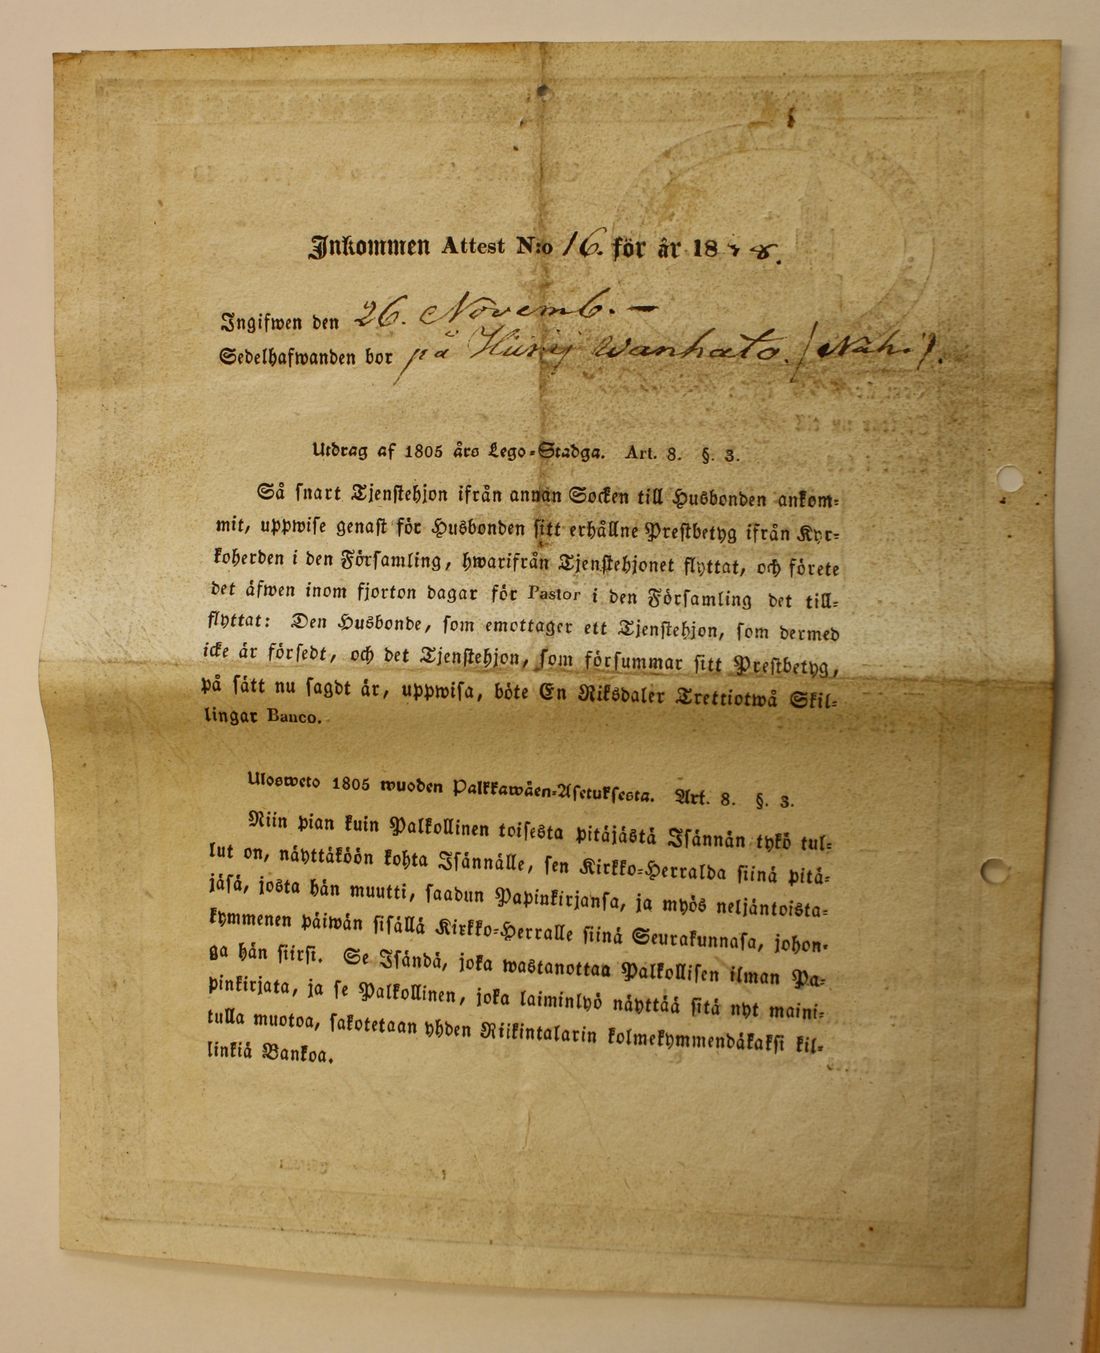 Inkommen Attest N:o 16. för år 18
Ingifwen den 26. Novemb. –
Sedelhafwanden bor på Wanhato.
Utdrag af 1805 års Lego-Stadga. Art. 8. §. 3.
Så snart Tjenstehjon ifrån annan Socken till Husbonden ankom-
mit, uppwise genast för Husbonden sitt erhållne Prestbetyg ifrån Kyr-
koherden i den Församling, hwarifrån Tjenstehjonet flyttat, och förete
det äfwen inom fjorton dagar för Pastor i den Församling det till-
flyttat: Den Husbonde, som emottager ett Tjenstehjon, som dermed
icke är försedt, och det Tjenstehjon, som försummar sitt Prestbetyg,
på sätt nu sagdt är, uppwisa, böte En Riksdaler Trettiotwå Skil-
lingar Banco.
Ulosweto 1805 wuoden Palkkawäen-Asetuksesta. Art. 8. §. 3.
Niin pian kuin Palkollinen toisesta pitäjästä Isännän tykö tul-
lut on, näyttäköön kohta Isännälle, sen Kirkko-Herralda siinä pitä-
jäsä, josta hän muutti, saadun Papinkirjansa, ja myös neljäntoista-
kymmenen päiwän sisällä Kirkko-Herralle siinä Seurakunnasa, johon-
ga hän siirsi. Se Isändä, joka wastanottaa Palkollisen ilman Pa-
pinkirjata, ja se Palkollinen, joka laiminlyö näyttää sitä nyt maini-
tulla muotoa, sakotetaan yhden Riikintalarin kolmekymmendäkaksi kil-
linkiä Bankoa.